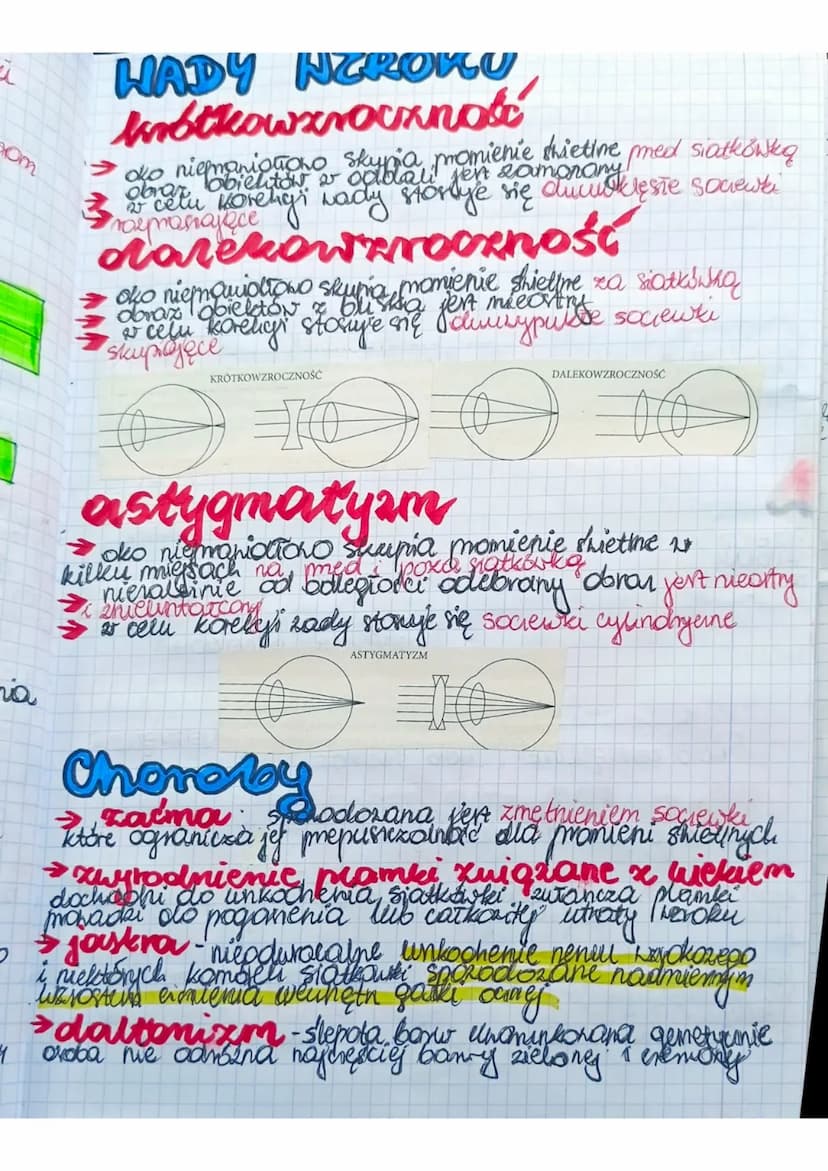 WADY WZROKU
krótkowzroczność
→ oko nieprawidłowo skupia promienie świetlne przed siatkówką
→ obraz obiektów w oddali jest zamazany
→ w celu korekcji wady stosuje się dwuwklęsłe soczewki
rozpraszające
dalekowzroczność
→ oko nieprawidłowo skupia promienie świetlne za siatkówką
→ obraz obiektów z bliska jest nieostry
→ w celu korekcji stosuje się dwuwypukłe soczewki
skupiające
KRÓTKOWZROCZNOŚĆ
DALEKOWZROCZNOŚĆ
astygmatyzm
→ oko nieprawidłowo skupia promienie świetlne w
kilku miejscach na, przed i poza siatkówką
→ niezależnie od odległości odebrany obraz jest nieostry
i zniekształcony
→ w celu korekcji wady stosuje się soczewki cylindryczne
ASTYGMATYZM
Choroby
→ zaćma : spowodowana jest zmętnieniem soczewki
które ogranicza jej przepuszczalność dla promieni świetlnych
→ zwyrodnienie plamki związane z wiekiem
dochodzi do uszkodzenia siatkówki, zwłaszcza plamki
prowadzi do pogorszenia lub całkowitej utraty wzroku
→ jaskra - nieodwracalne uszkodzenie nerwu wzrokowego
i niektórych komórek siatkówki spowodowane nadmiernym
wzrostem ciśnienia wewnątrz gałki ocznej
→ daltonizm - ślepota barw uwarunkowana genetycznie
osoba nie odróżnia najczęściej barwy zielonej i czerwonej